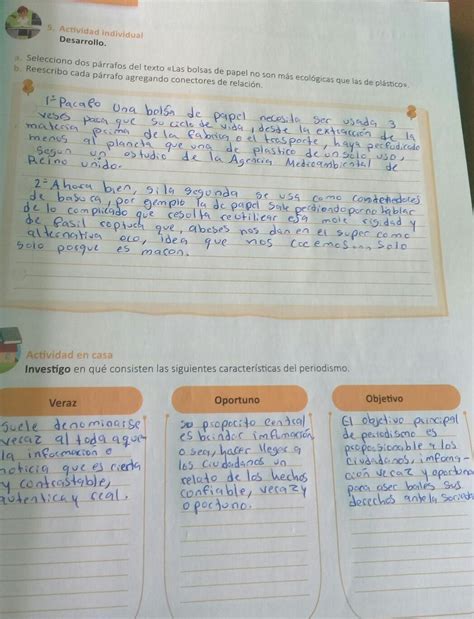 5. Actividad individual
Desarrollo.
a. Selecciono dos párrafos del texto «Las bolsas de papel no son más ecológicas que las de plástico».
b. Reescribo cada párrafo agregando conectores de relación.
1º Pacafo Una bolsa de papel necesita ser usada 3
veses para que su ciclo de vida, desde la extracción de la
materia prima de la fabrica o el trasporte, haya perjudicado
menos al planeta que una de plastico de un solo uso,
segun un estudio de la Agencia Medioambiental de
Reino unido.
2º Ahora bien, si la segunda se usa como contenedores
de basura, por gemplo la de papel sale perdiendo por no hablar
de lo complicado que resolta reutilizar esa mole rigidad y
de fasil roptura que, abeses nos dan en el super como
alternativa eco, idea que nos cocemos... solo
solo porque es macon.
Actividad en casa
Investigo en qué consisten las siguientes características del periodismo.
Veraz
suele denominarse
veraz al toda aque
la informacion o
noticia que es cierta
y contrastable,
autentica y real.
Oportuno
su proposito central
es brindar imfumación
o sea, hacer llegar a
los ciudadanos un
relato de los hechos
confiable, veraz y
oportuno.
Objetivo
El objetivo principal
de periodismo es
proposionable a los
ciudadanos, imfoma-
ción veraz y oportuna
para aser bales sus
derechos ante la socieda